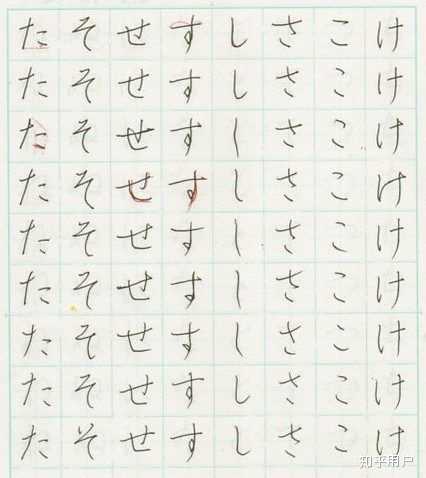 けけけけけけけけけ
こここここここここ
さささささささささ
ししししししししし
すすすすすすすすす
せせせせせせせせせ
そそそそそそそそそ
たたたたたたたたた
知乎用户